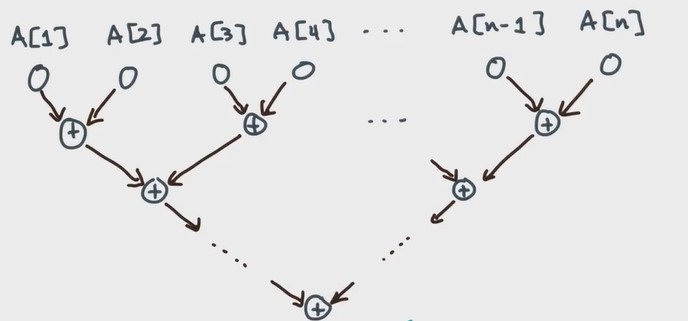 A[1] A[2] A[3] A[4] ... A[n-1] A[n]
+ + ... +
+ +
.... ....
+